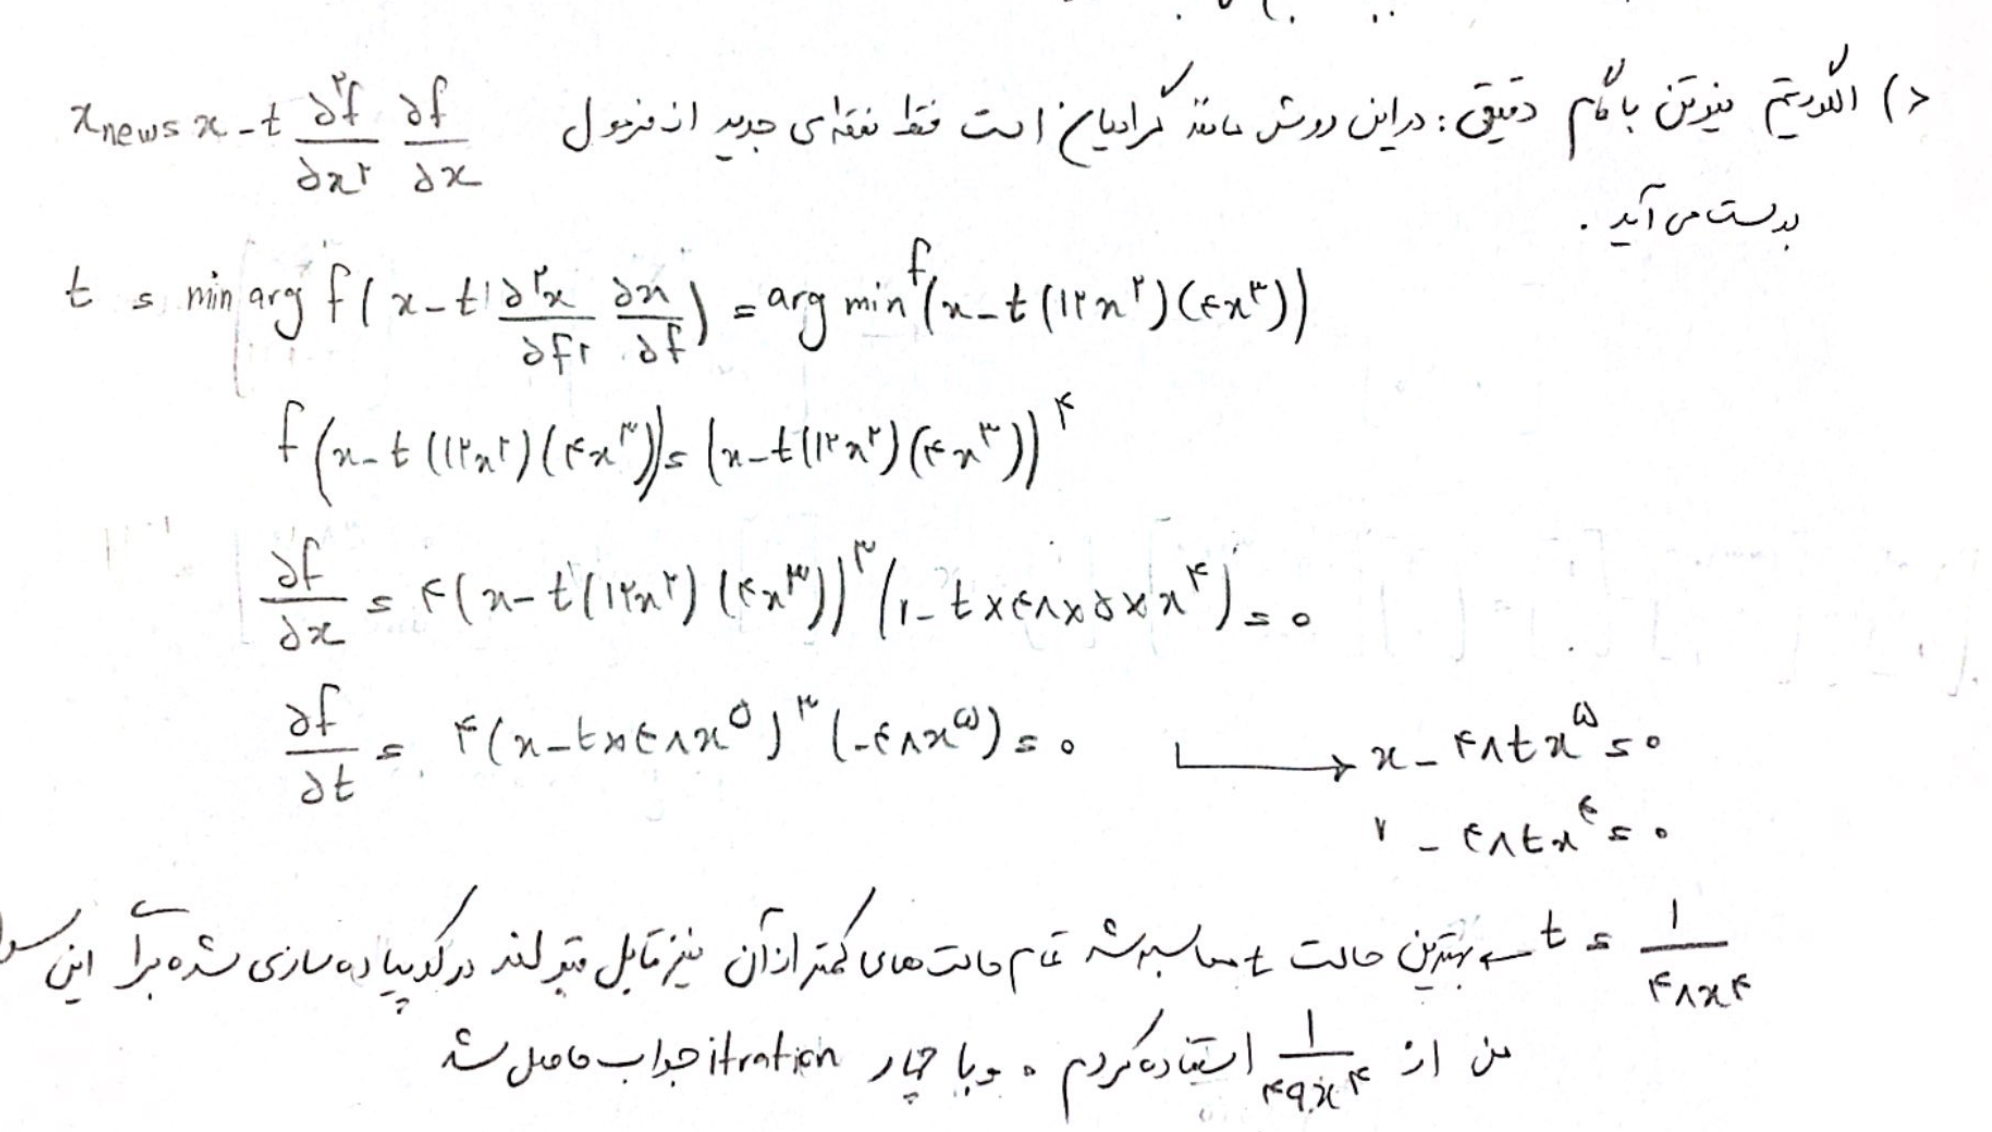 د) الگوریتم نیوتن با گام دقیق: در این روش مانند گرادیان است فقط نقطه‌ی جدید از فرمول x_new = x - t ∂²f/∂x² ∂f/∂x
بدست می آید .
t = min arg f(x - t ∂²x/∂f² ∂x/∂f) = arg min f(x - t(۱۲x²)(۴x³))
f(x - t(۱۲x²)(۴x³)) = (x - t(۱۲x²)(۴x³))⁴
∂f/∂x = ۴(x - t(۱۲x²)(۴x³))³ (۱ - t×۴۸×۵×x⁴) = ۰
∂f/∂t = ۴(x - t×۴۸x⁵)³ (-۴۸x⁵) = ۰ → x - ۴۸tx⁵ = ۰
۱ - ۴۸tx⁴ = ۰
t = ۱/۴۸x⁴ ← بهترین حالت t محاسبه شد تمام حالت های کمتر از آن نیز قابل قبولند در کد پیاده سازی شده برای این
من از ۱/۴۹x⁴ استفاده کردم . و با چهار itration جواب حاصل شد